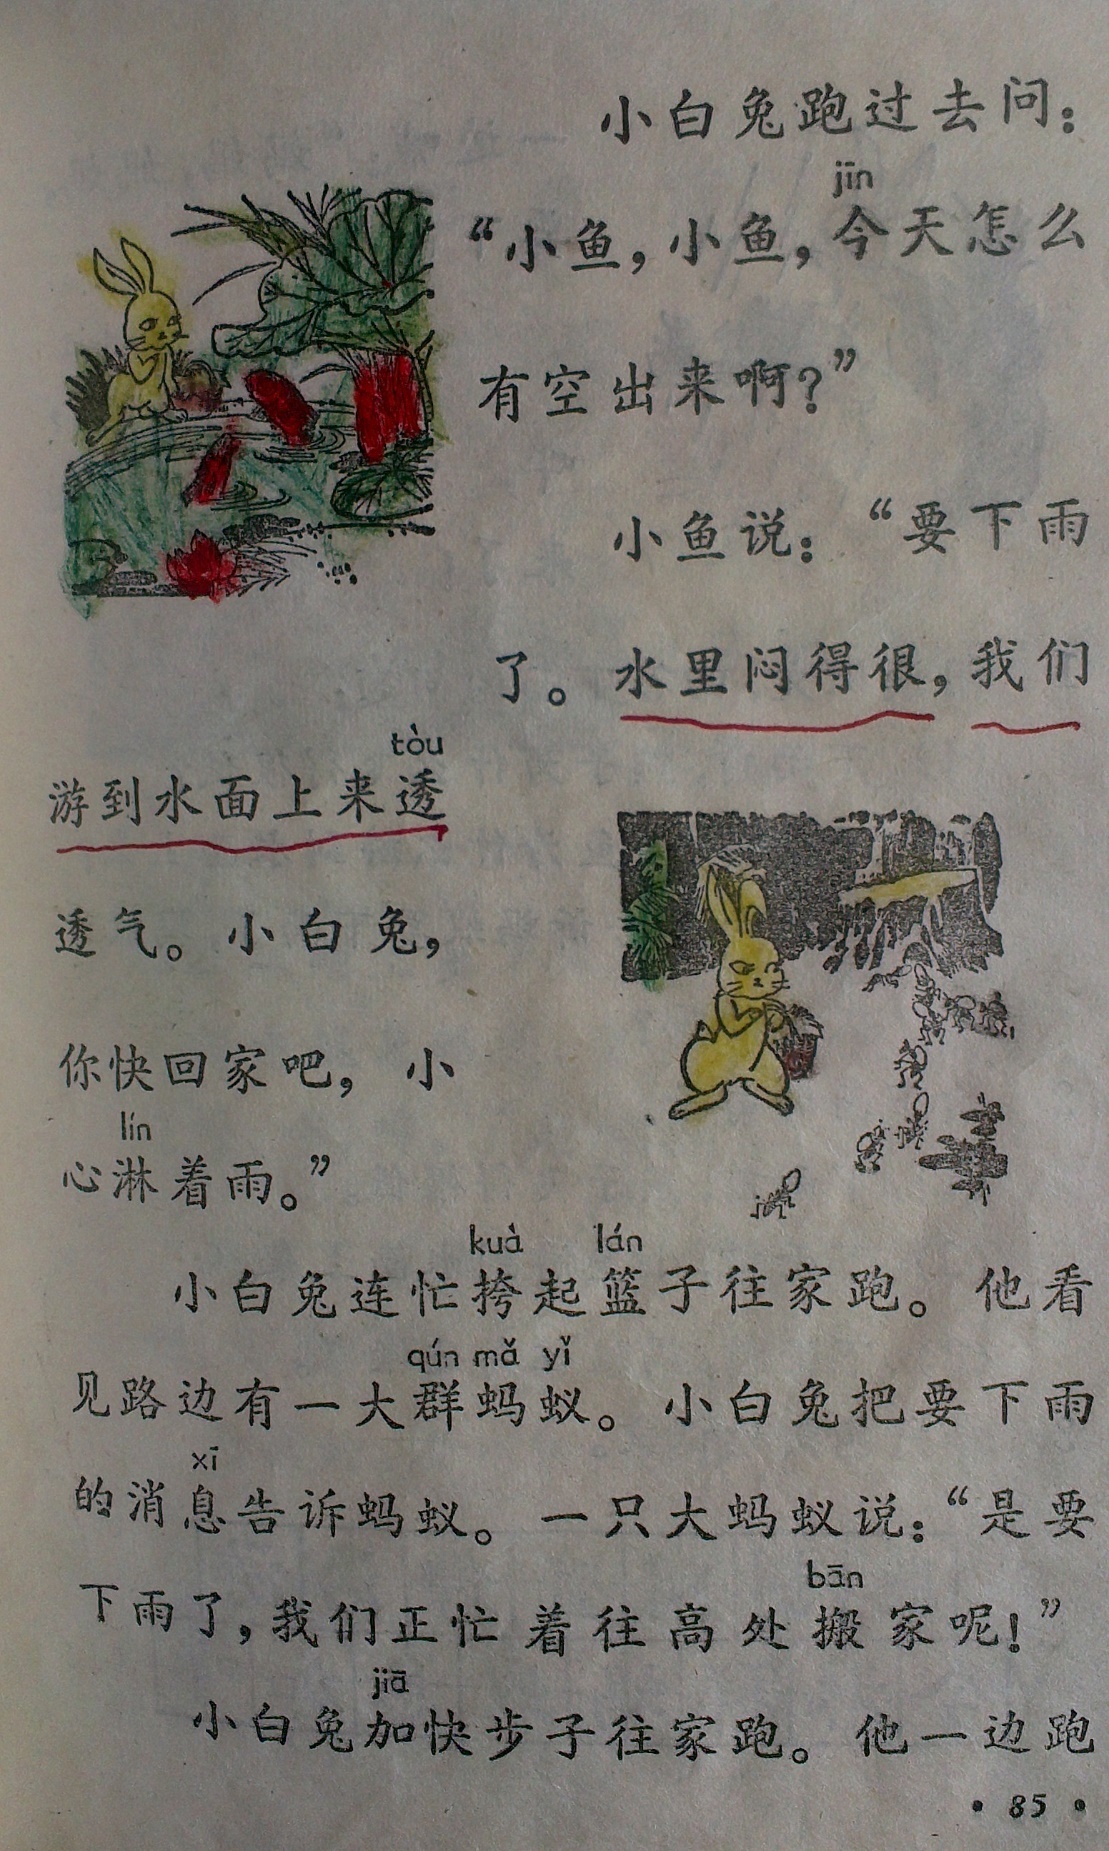 小白兔跑过去问：
jīn
“小鱼，小鱼，今天怎么
有空出来啊？”
小鱼说：“要下雨
了。水里闷得很，我们
tòu
游到水面上来透
透气。小白兔，
你快回家吧，小
lín
心淋着雨。”
kuà lán
小白兔连忙挎起篮子往家跑。他看
qún mǎ yǐ
见路边有一大群蚂蚁。小白兔把要下雨
xī
的消息告诉蚂蚁。一只大蚂蚁说：“是要
bān
下雨了，我们正忙着往高处搬家呢！”
jiā
小白兔加快步子往家跑。他一边跑
·85·